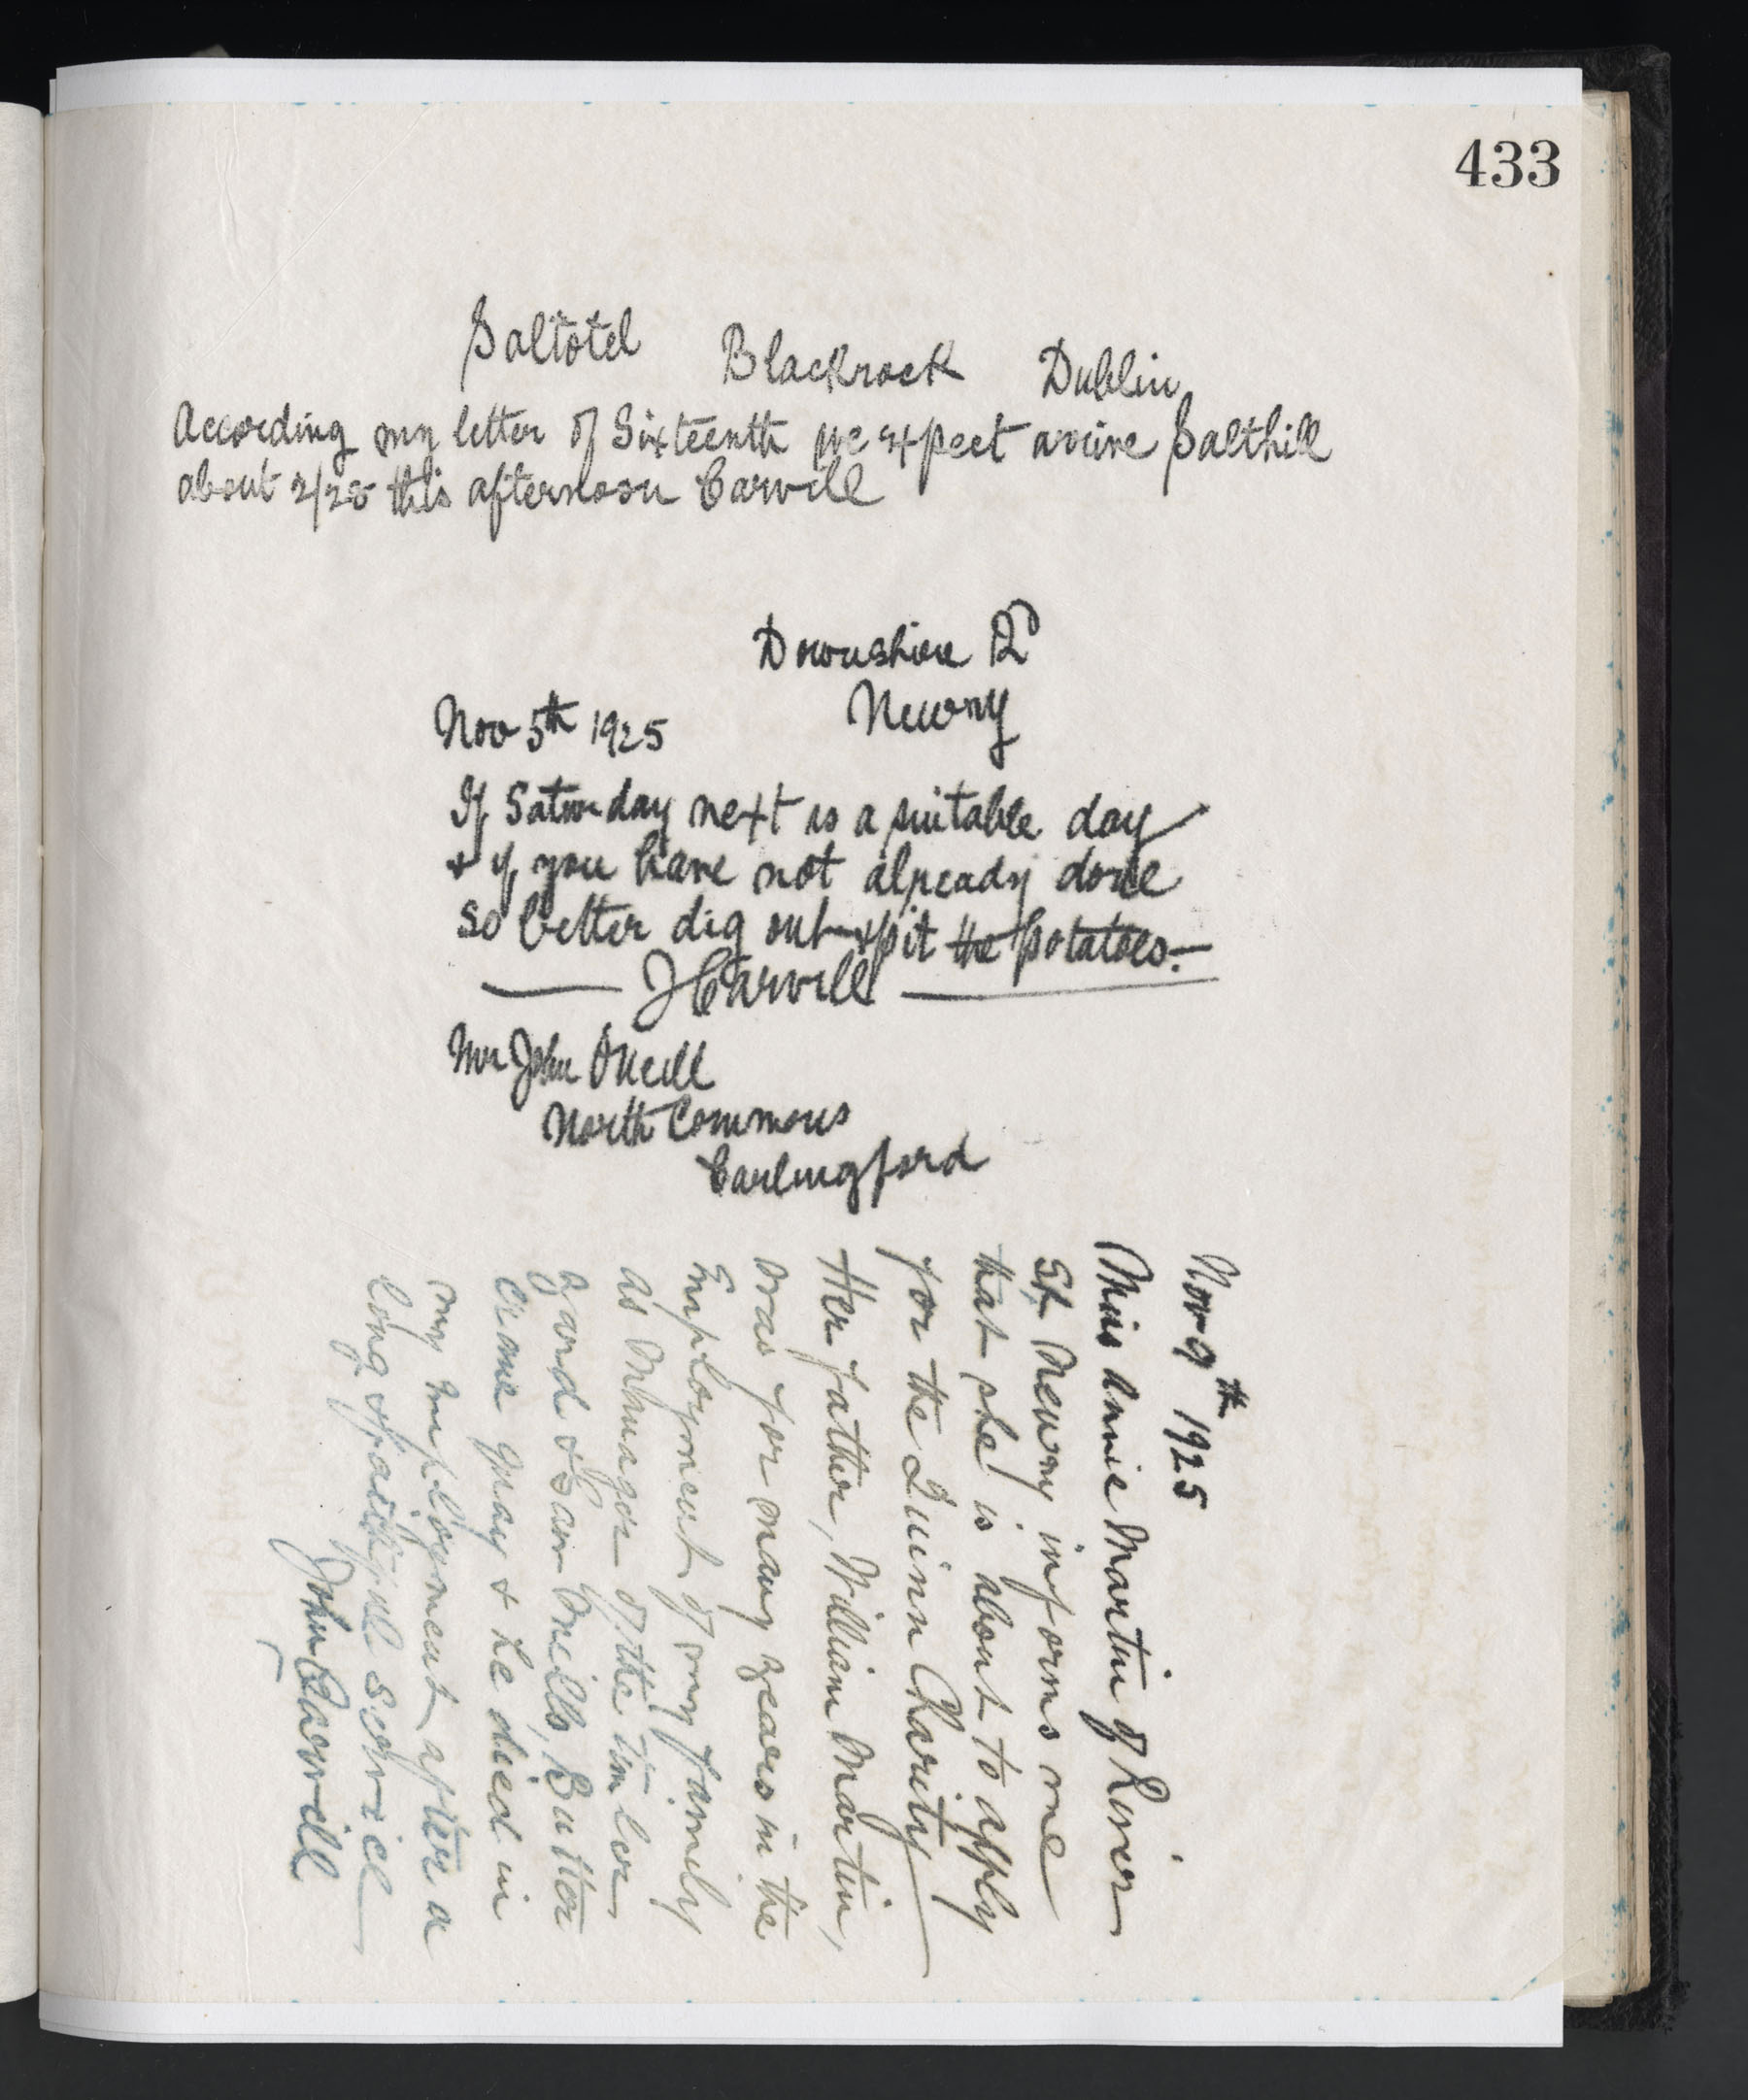 433
Saltotel Blackrock Dublin
According my letter of Sixteenth we expect arrive Salthill
about 2/25 this afternoon Carvill
Downshire Rd
Newry
Nov 5th 1925
If Saturday next is a suitable day
& if you have not already done
so better dig out & pit the potatoes.—
J Carvill
Mr John O'Neill
North Commons
Carlingford
Nov 9th 1925
Miss Annie Martin of River
St Newry informs me
that she is about to apply
for the Quinn Charity
Her father, William Martin,
was for many years in the
Employment of my family
as Manager of the Timber
yard & Saw Mills, Butter
Crane Quay & he died in
my employment after a
long & faithful service
John Carvill